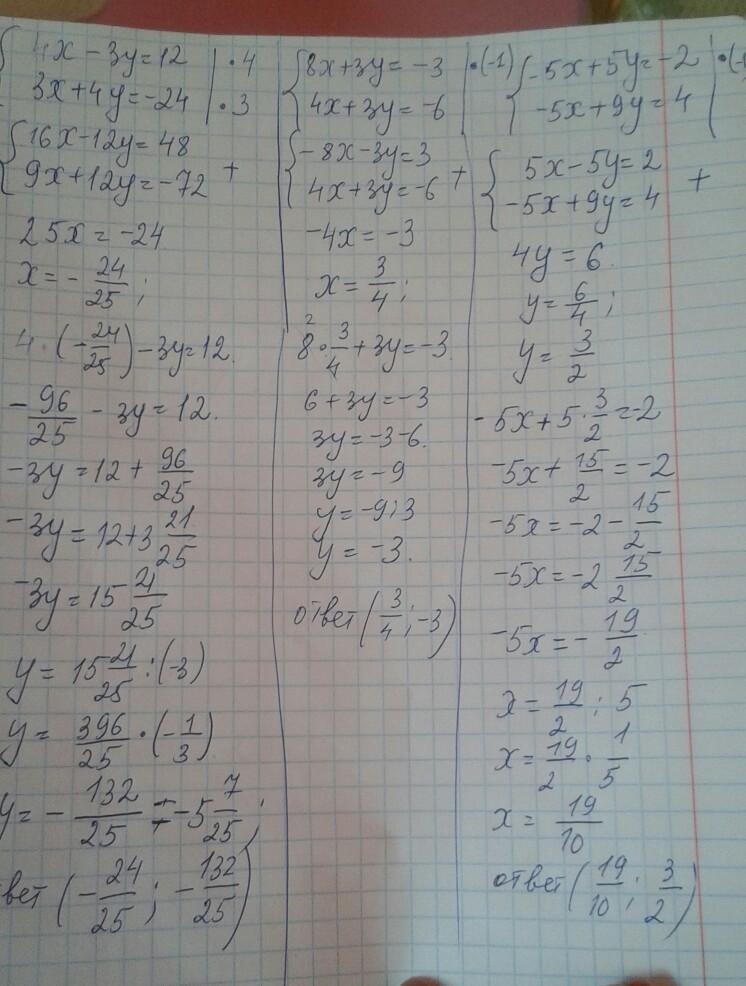 4x - 3y = 12 | · 4
3x + 4y = -24 | · 3
16x - 12y = 48
9x + 12y = -72 +
25x = -24
x = - 24/25 ;
4 · (-24/25) - 3y = 12.
- 96/25 - 3y = 12.
-3y = 12 + 96/25
-3y = 12 + 3 21/25
-3y = 15 21/25
y = 15 21/25 : (-3)
y = 396/25 · (-1/3)
y = - 132/25 = -5 7/25 ;
вет (- 24/25 ; - 132/25)
8x + 3y = -3 | · (-1)
4x + 3y = -6
-8x - 3y = 3
4x + 3y = -6 +
-4x = -3
x = 3/4 ;
2
8 · 3/4 + 3y = -3
6 + 3y = -3
3y = -3 - 6.
3y = -9
y = -9 : 3
y = -3.
ответ (3/4 ; -3)
-5x + 5y = -2 | · (-1
-5x + 9y = 4
5x - 5y = 2
-5x + 9y = 4 +
4y = 6
y = 6/4 ;
y = 3/2
-5x + 5 · 3/2 = -2
-5x + 15/2 = -2
-5x = -2 - 15/2
-5x = -2 15/2
-5x = - 19/2
x = 19/2 : 5
x = 19/2 · 1/5
x = 19/10
ответ (19/10 ; 3/2)